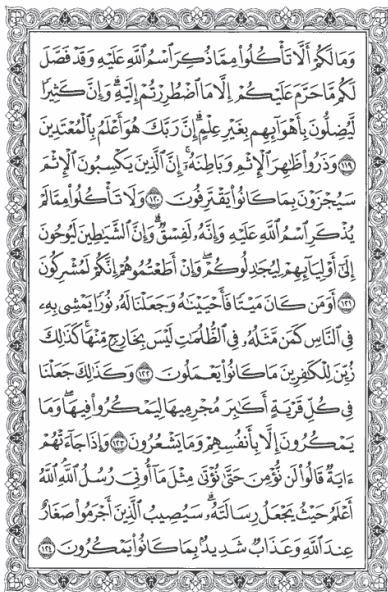 وَمَا لَكُمْ أَلَّا تَأْكُلُوا۟ مِمَّا ذُكِرَ ٱسْمُ ٱللَّهِ عَلَيْهِ وَقَدْ فَصَّلَ
لَكُم مَّا حَرَّمَ عَلَيْكُمْ إِلَّا مَا ٱضْطُرِرْتُمْ إِلَيْهِ ۗ وَإِنَّ كَثِيرًا
لَّيُضِلُّونَ بِأَهْوَآئِهِم بِغَيْرِ عِلْمٍ ۗ إِنَّ رَبَّكَ هُوَ أَعْلَمُ بِٱلْمُعْتَدِينَ
١١٩ وَذَرُوا۟ ظَٰهِرَ ٱلْإِثْمِ وَبَاطِنَهُۥٓ ۚ إِنَّ ٱلَّذِينَ يَكْسِبُونَ ٱلْإِثْمَ
سَيُجْزَوْنَ بِمَا كَانُوا۟ يَقْتَرِفُونَ ١٢٠ وَلَا تَأْكُلُوا۟ مِمَّا لَمْ
يُذْكَرِ ٱسْمُ ٱللَّهِ عَلَيْهِ وَإِنَّهُۥ لَفِسْقٌ ۗ وَإِنَّ ٱلشَّيَٰطِينَ لَيُوحُونَ
إِلَىٰٓ أَوْلِيَآئِهِمْ لِيُجَٰدِلُوكُمْ ۖ وَإِنْ أَطَعْتُمُوهُمْ إِنَّكُمْ لَمُشْرِكُونَ
١٢١ أَوَمَن كَانَ مَيْتًا فَأَحْيَيْنَٰهُ وَجَعَلْنَا لَهُۥ نُورًا يَمْشِى بِهِۦ
فِى ٱلنَّاسِ كَمَن مَّثَلُهُۥ فِى ٱلظُّلُمَٰتِ لَيْسَ بِخَارِجٍ مِّنْهَا ۚ كَذَٰلِكَ
زُيِّنَ لِلْكَٰفِرِينَ مَا كَانُوا۟ يَعْمَلُونَ ١٢٢ وَكَذَٰلِكَ جَعَلْنَا
فِى كُلِّ قَرْيَةٍ أَكَٰبِرَ مُجْرِمِيهَا لِيَمْكُرُوا۟ فِيهَا ۖ وَمَا
يَمْكُرُونَ إِلَّا بِأَنفُسِهِمْ وَمَا يَشْعُرُونَ ١٢٣ وَإِذَا جَآءَتْهُمْ
ءَايَةٌ قَالُوا۟ لَن نُّؤْمِنَ حَتَّىٰ نُؤْتَىٰ مِثْلَ مَآ أُوتِىَ رُسُلُ ٱللَّهِ ۘ ٱللَّهُ
أَعْلَمُ حَيْثُ يَجْعَلُ رِسَالَتَهُۥ ۗ سَيُصِيبُ ٱلَّذِينَ أَجْرَمُوا۟ صَغَارٌ
عِندَ ٱللَّهِ وَعَذَابٌ شَدِيدٌۢ بِمَا كَانُوا۟ يَمْكُرُونَ ١٢٤